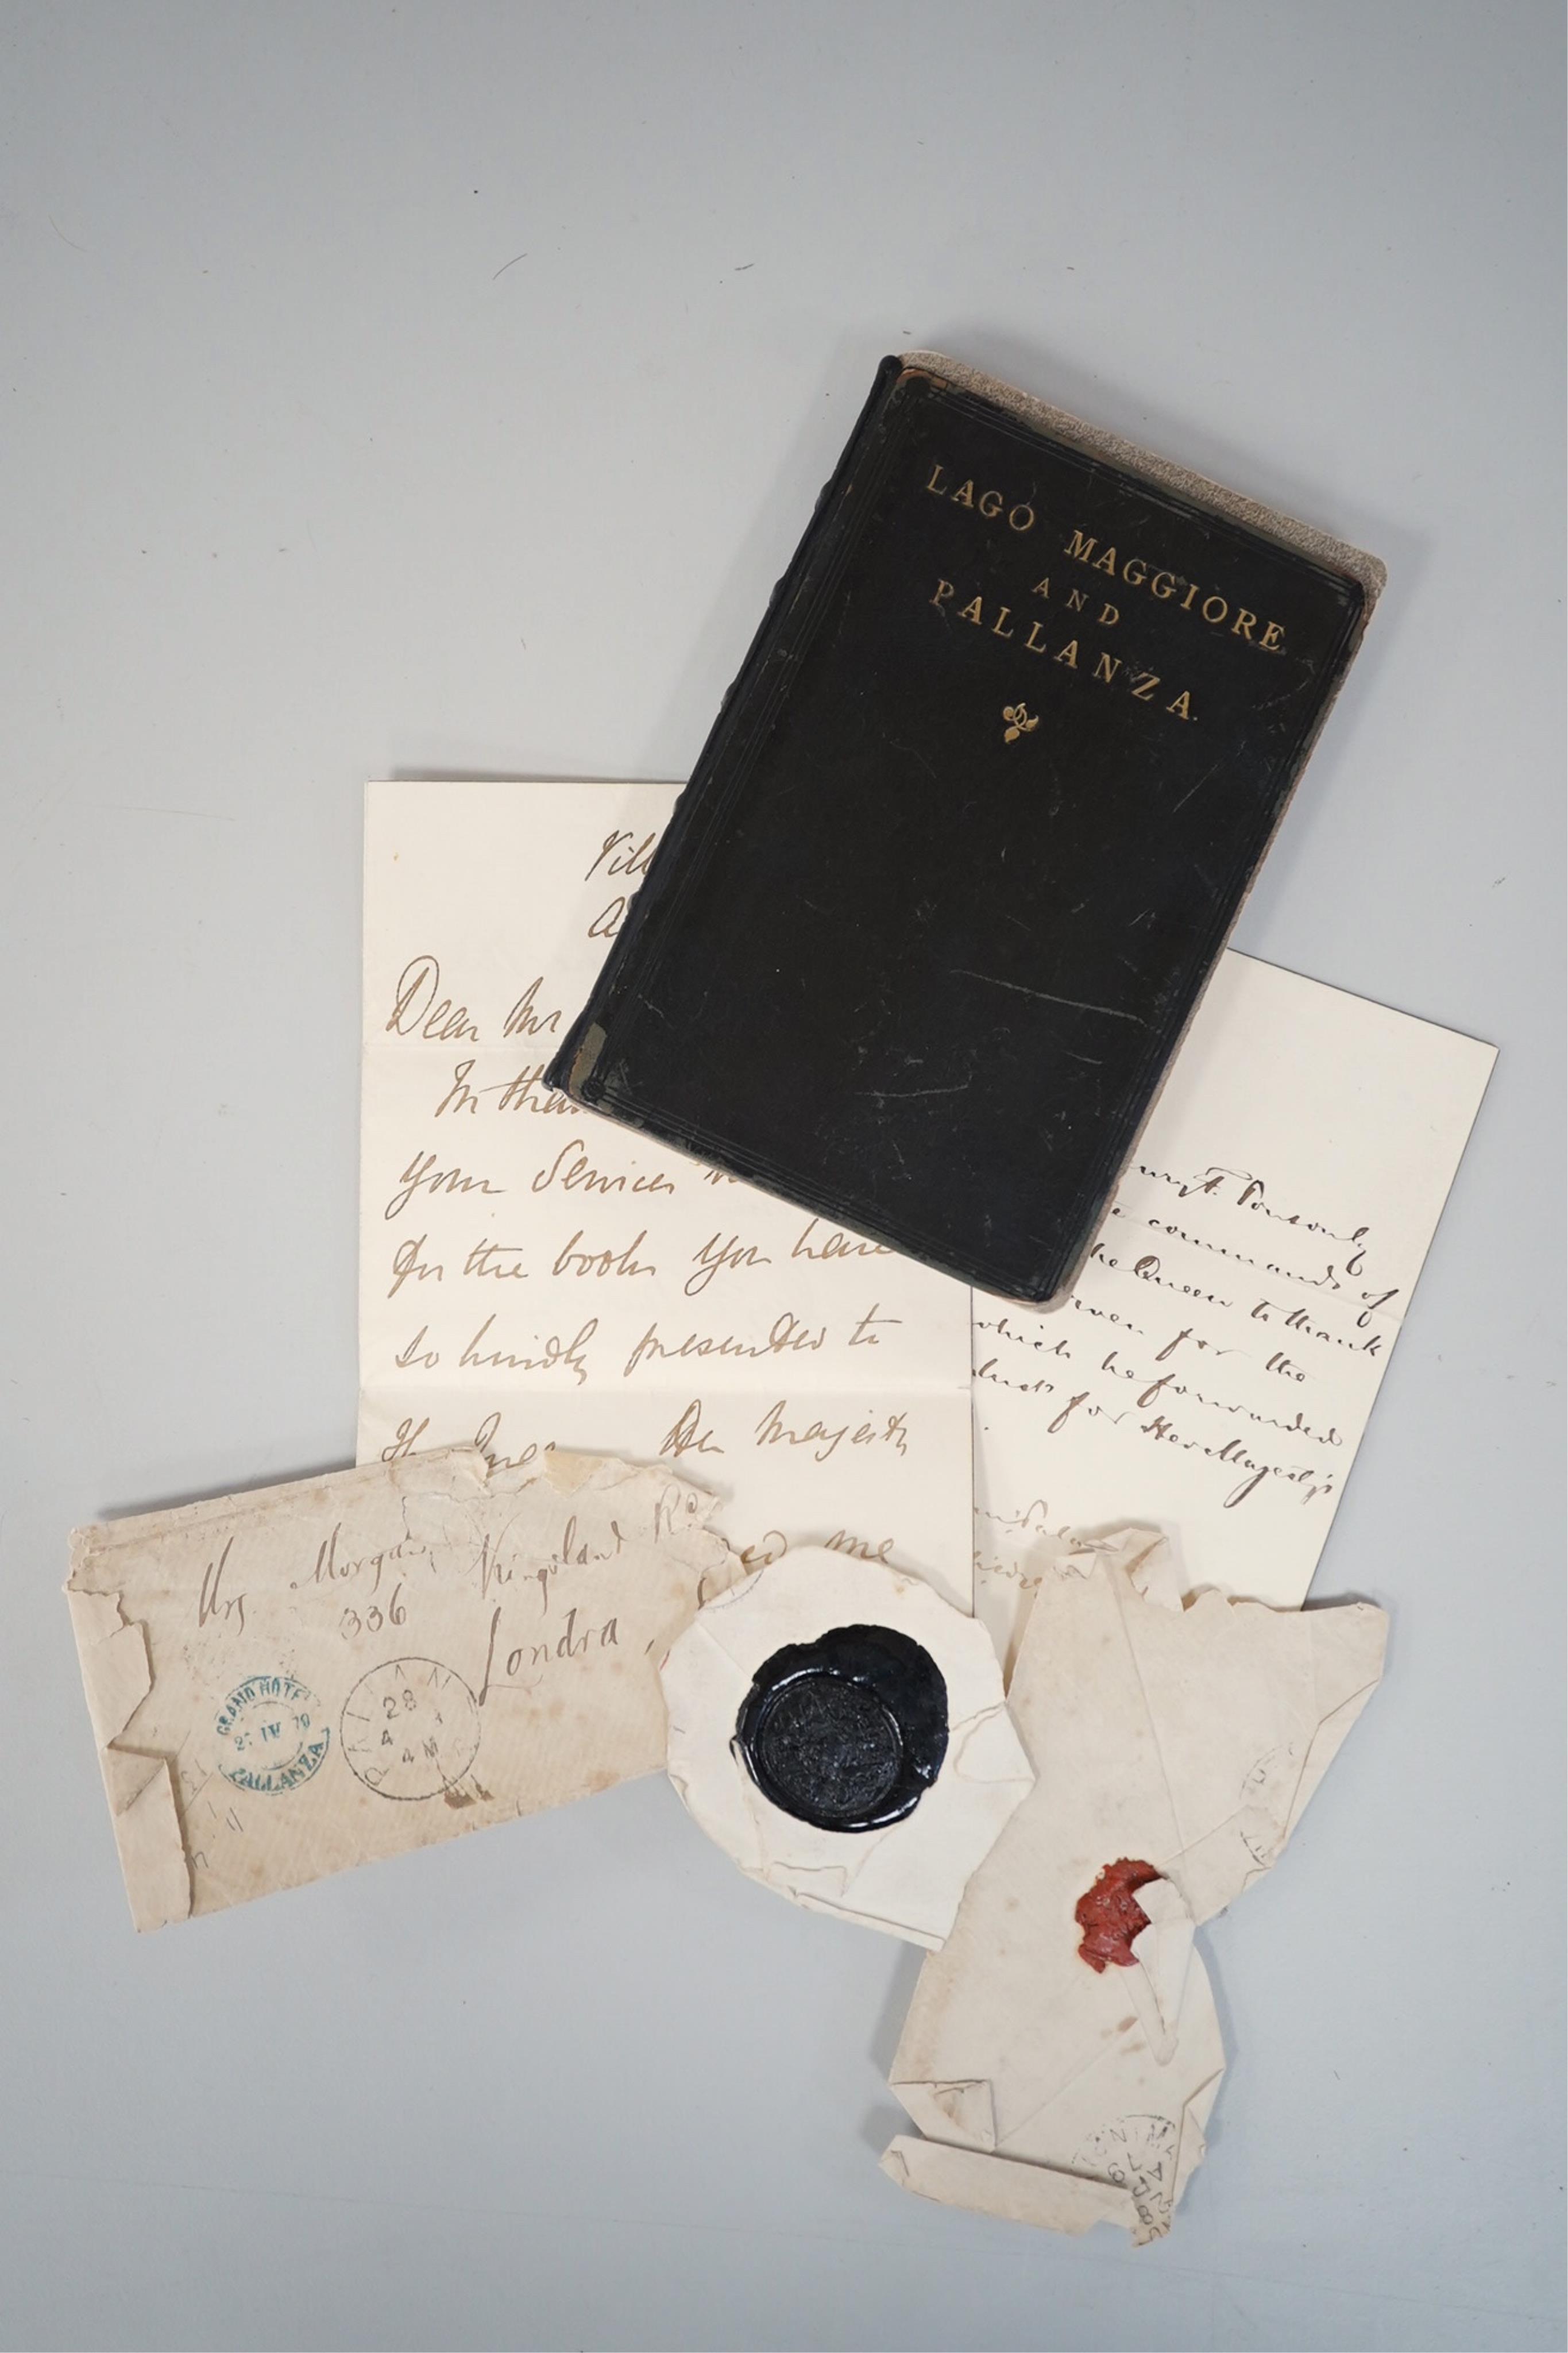 LAGO MAGGIORE
AND
PALLANZA.
Vill
A
Dear Mr
In than
your Services
for the books you have
so kindly presented to
Her Majesty
ed me
Ponsonby
commands of
he Queen to thank
for the
which he forwarded
for Her Majesty's
Mrs. Morgan, Kingsland Rd
336
Londra,
GRAND HOTEL
IV 79
PALLANZA
28
4
4 M